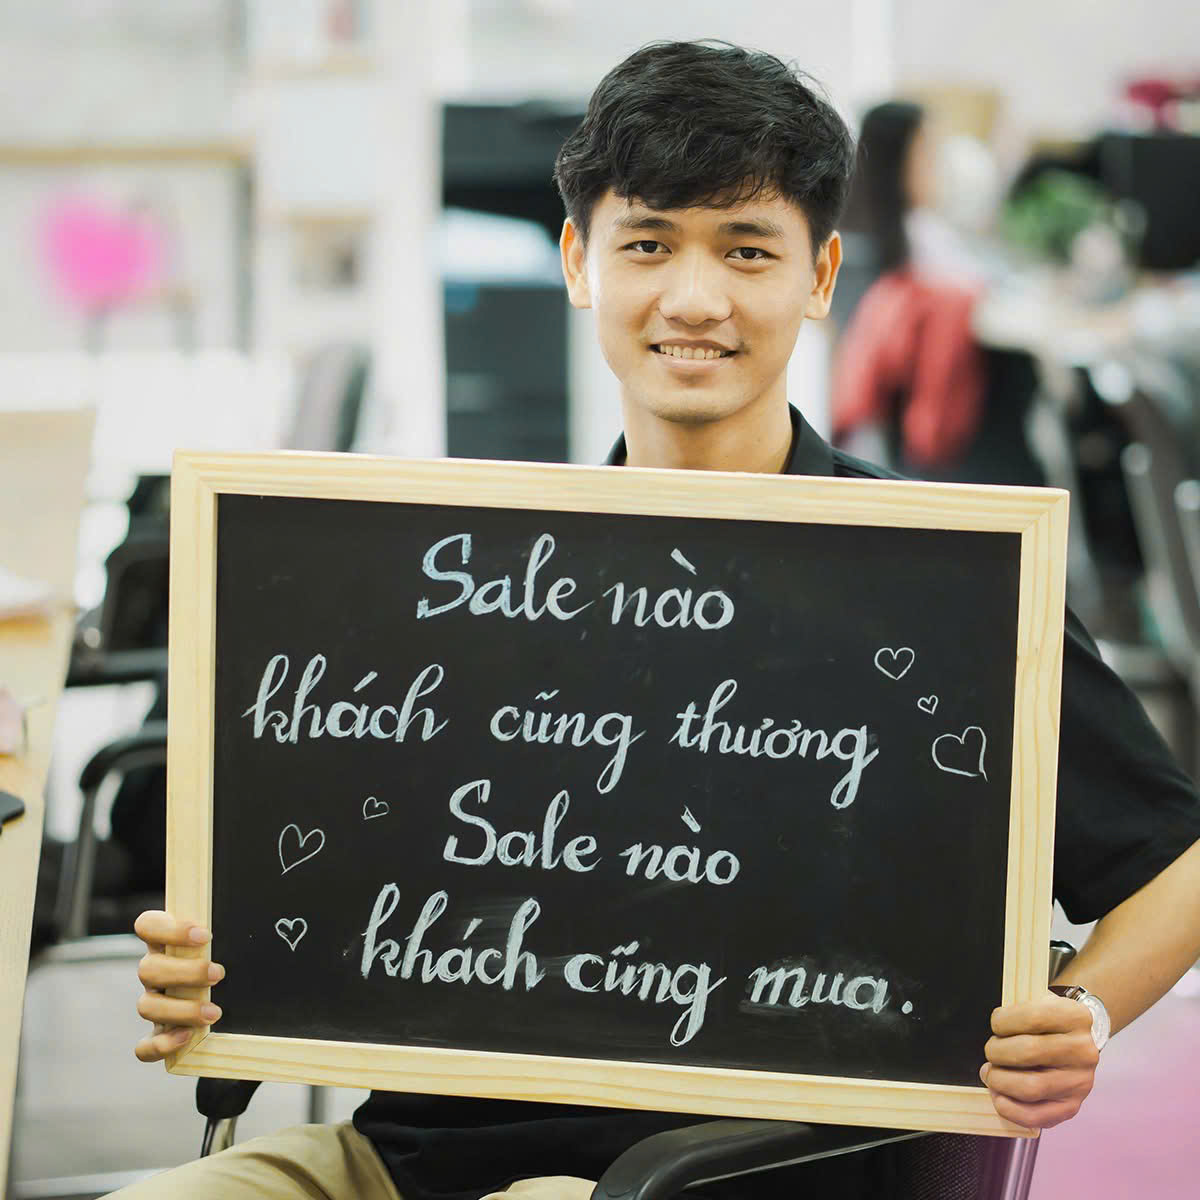 Sale nào
khách cũng thương
Sale nào
khách cũng mua.